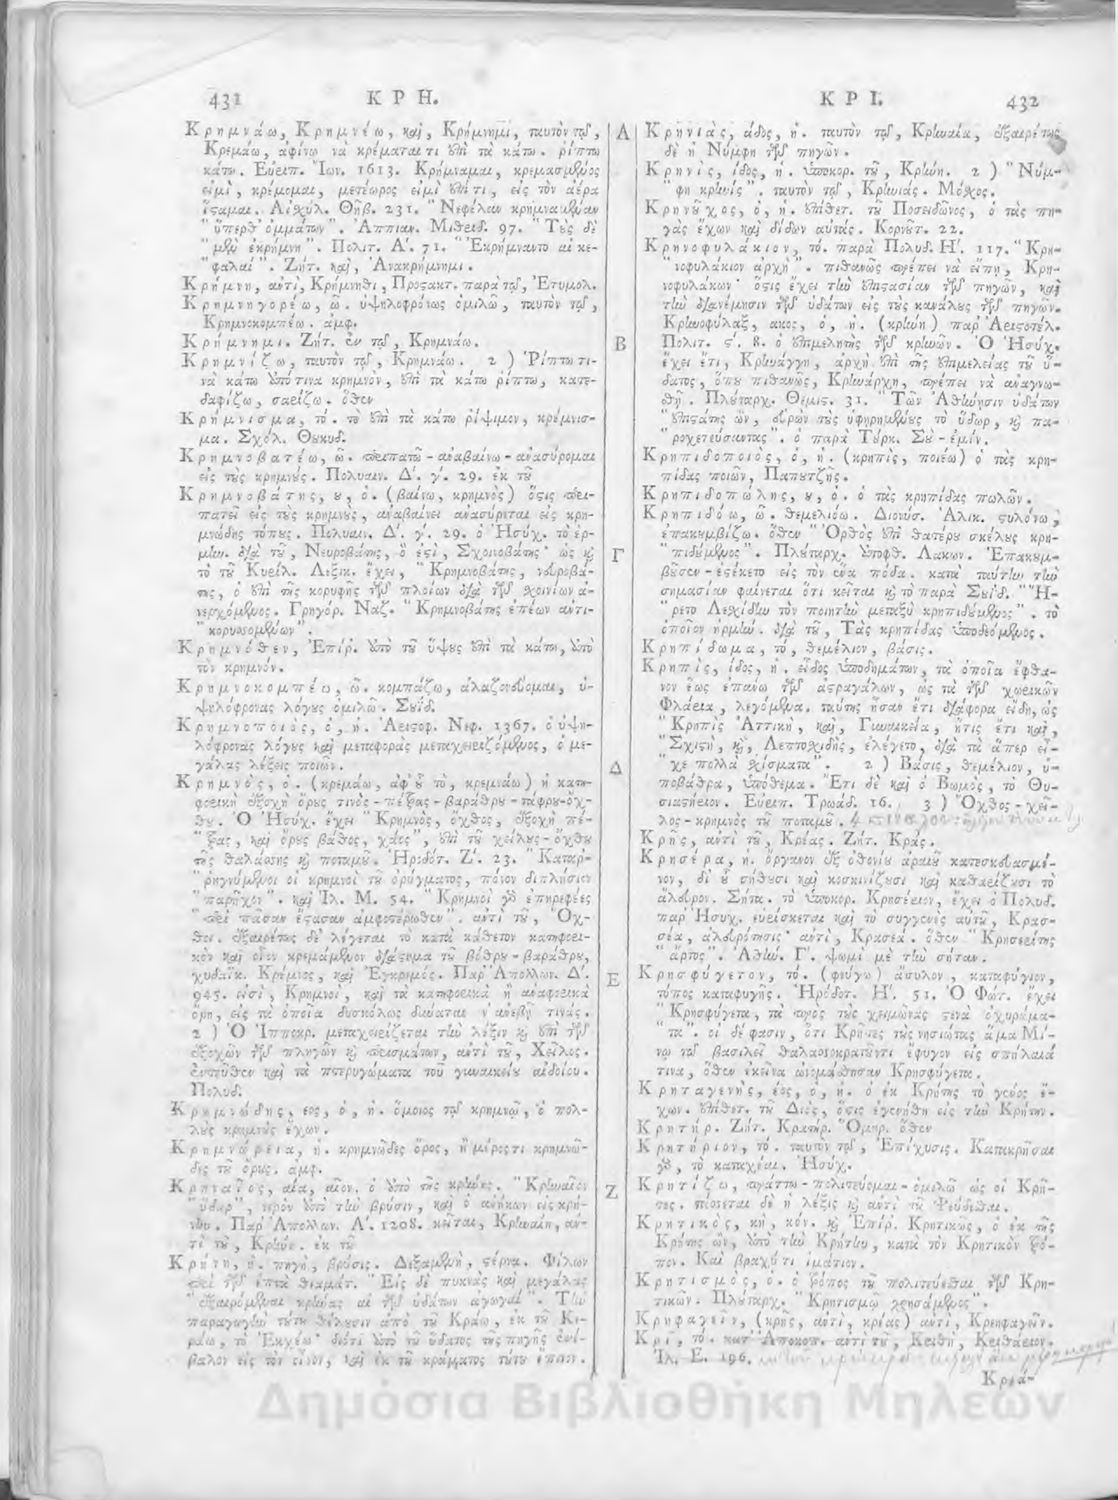 431 Κ Ρ Η.
Κρημνάω, Κρημνέω, καὶ, Κρήμνημι, ταυτὸν τῷ,
Κρεμάω, ἀφίνω νὰ κρέματαί τι ἐπὶ τὰ κάτω. ῥίπτω
κάτω. Εὐριπ. Ἴων. 1613. Κρήμναμαι, κρεμασμένος
εἰμὶ, κρέμομαι, μετέωρος εἰμὶ ἐπί τι, εἰς τὸν ἀέρα
ἵσαμαι. Αἰσχύλ. Θηβ. 231. "Νεφέλαν κρημναμέναν
"ὕπερθ' ὀμμάτων". Ἀππιαν. Μιθριδ. 97. "Τὺς δὲ
"μὲν ἐκρήμνη". Πολιτ. Α΄. 71. "Ἐκρήμναντο αἱ κε-
"φαλαί". Ζήτ. καὶ, Ἀνακρήμνημι.
Κρήμνη, αὐτὶ, Κρήμνηθι, Προςακτ. παρὰ τῷ, Ἐτυμολ.
Κρημνηγορέω, ῶ. ὑψηλοφρόνως ὁμιλῶ, ταυτὸν τῷ,
Κρημνοκομπέω. ἀμφ.
Κρήμνημι. Ζήτ. ἐν τῷ, Κρημνάω.
Κρημνίζω, ταυτὸν τῷ, Κρημνάω. 2 ) Ῥίπτω τι-
νὰ κάτω ἀπὸ τινα κρημνὸν, ἐπὶ τὰ κάτω ῥίπτω, κατε-
δαφίζω, σαείζω. ὅθεν
Κρήμνισμα, τό. τὸ ἐπὶ τὰ κάτω ῥίψιμον, κρέμνισ-
μα. Σχόλ. Θυκυδ.
Κρημνοβατέω, ῶ. περιπατῶ - ἀναβαίνω - ἀνασύρομαι
εἰς τὺς κρημνύς. Πολυαιν. Δ΄. γ΄. 29. ἐκ τῦ
Κρημνοβάτης, υ, ὁ. (βαίνω, κρημνὸς) ὅςις περι-
πατεῖ εἰς τὺς κρημνὺς, ἀναβαίνει ἀνασύρεται εἰς κρη-
μνώδης τόπυς. Πολυαιν. Δ΄. γ΄. 29. ὁ Ἡσύχ. τὸ ἑρ-
μην. διὰ τῦ, Νευροβάτης, ὅ ἐςι, Σχοινοβάτης· ὡς καὶ
τὸ τῦ Κυρίλ. Λεξικ. ἔχει, "Κρημνοβάτης, νευροβά-
της, ὁ ἐπὶ τῆς κορυφῆς τῶν πλοίων διὰ τῶν σχοινίων ἀ-
νερχόμενος. Γρηγόρ. Ναζ. "Κρημνοβάτης ἐπέων ἀντι-
"κορυσσομένων".
Κρημνόθεν, Ἐπίρ. ἀπὸ τῦ ὕψυς ἐπὶ τὰ κάτω, ἀπὸ
τὸν κρημνόν.
Κρημνοκομπέω, ῶ. κομπάζω, ἀλαζονεύομαι, ὑ-
ψηλόφρονας λόγυς ὁμιλῶ. Συΐδ.
Κρημνοποιὸς, ὁ, ἡ. Ἀριςοφ. Νεφ. 1367. ὁ ὑψη-
λόφρονας λόγυς καὶ μεταφορὰς μεταχειριζόμενος, ὁ με-
γάλας λέξεις ποιῶν.
Κρημνὸς, ὁ. (κρεμάω, ἀφ' ὗ τὸ, κρεμνάω) ἡ κατη-
φορικὴ ἐξοχὴ ὄρυς τινὸς - πέτρας - βαράθρυ - τάφρυ - ὄχ-
θυ. Ὁ Ἡσύχ. ἔχει "Κρημνὸς, ὄχθος, ἐξοχὴ πέ-
"τρας, καὶ ὄρυς βάθος, χάος", ἐπὶ τῦ χείλυς - ὄχθυ
τῆς θαλάσσης καὶ ποταμῦ. Ἡρόδότ. Ζ΄. 23. "Καταρ-
"ρηγνύμενοι οἱ κρημνοὶ τῦ ὀρύγματος, πόνον διπλήσιον
"παρῆχον". καὶ Ἰλ. Μ. 54. "Κρημνοὶ γὰρ ἐπηρεφέες
"περὶ πᾶσαν ἕςασαν ἀμφοτέρωθεν". αὐτὶ τῦ, Ὄχ-
θοι. ἐξαιρέτως δὲ λέγεται τὸ κατὰ κάθετον κατηφορι-
κὸν καὶ οἷον κρεμάμενον διάςημα τῦ βόθρυ - βαράθρυ,
χυδαϊκ. Κρέμιος, καὶ Ἐγκρεμός. Παρ' Ἀπολλων. Δ΄.
945. εἰσὶ, Κρημνοὶ, καὶ τὰ κατηφορικὰ ἢ ἀναφορικὰ
ὄρη, εἰς τὰ ὁποῖα δυσκόλως δύναται ν' ἀνεβῇ τινάς.
2 ) Ὁ Ἱπποκρ. μεταχειρίζεται τὴν λέξιν καὶ ἐπὶ τῶν
ἐξοχῶν τῶν πληγῶν καὶ πρισμάτων, αὐτὶ τῦ, Χεῖλος.
ἐντεῦθεν καὶ τὰ πτερυγώματα τοῦ γυναικείυ αἰδοίου.
Πολυδ.
Κρημνώδης, εος, ὁ, ἡ. ὅμοιος τῷ κρημνῷ, ὁ πολ-
λὺς κρημνὺς ἔχων.
Κρημνώρεια, ἡ. κρημνῶδες ὄρος, ἢ μέρος τι κρημνῶ-
δες τῦ ὄρυς. ἀμφ.
Κρηναῖος, αία, αῖον. ὁ ἀπὸ τῆς κρήνης. "Κρηναῖον
"ὕδωρ", νερὸν ἀπὸ τὴν βρύσιν, καὶ ὁ ἀνήκων εἰς κρή-
νην. Παρ' Ἀπολλων. Α΄. 1208. κεῖται, Κρηναίη, ἀν-
τὶ τῦ, Κρήνη. ἐκ τῦ
Κρήνη, ἡ. πηγὴ, βρύσις. Δεξαμενὴ, ςέρνα. Φίλων
περὶ τῶν ἑπτὰ θιαμάτ. "Εἰς δὲ πυκνὰς καὶ μεγάλας
"ἐξαιρόμεναι κρήνας αἱ τῶν ὑδάτων ἀγωγαί". Τὴν
παραγωγὴν τύτυ θέλυσιν ἀπὸ τῦ Κράω, ἐκ τῦ Κι-
ράω, τὸ Ἐκχέω· διότι ἀπὸ τῦ ὕδατος τῆς πηγῆς ἐνέ-
βαλον εἰς τὸν οἶνον, καὶ ἐκ τῦ κράματος τύτυ ἔπινον.
Α
Β
Γ
Δ
Ε
Ζ
Κ Ρ Ι. 432
Κρηνιὰς, άδος, ἡ. ταυτὸν τῷ, Κρηναία, ἐξαιρέτως
δὲ ἡ Νύμφη τῶν πηγῶν.
Κρηνὶς, ίδος, ἡ. ὑποκορ. τῦ, Κρήνη. 2 ) "Νύμ-
"φη κρηνίς". ταυτὸν τῷ, Κρηνιάς. Μόσχος.
Κρηνῦχος, ὁ, ἡ. ἐπίθετ. τῦ Ποσειδῶνος, ὁ τὰς πη-
γὰς ἔχων καὶ δίδων αὐτάς. Κορνῦτ. 22.
Κρηνοφυλάκιον, τό. παρὰ Πολυδ. Η΄. 117. "Κρη-
"νοφυλάκιον ἀρχὴ". πιθανῶς πρέπει νὰ εἴπῃ, Κρη-
νοφυλάκων· ὅςις ἔχει τὴν ἐπιςασίαν τῶν πηγῶν, καὶ
τὴν διανέμησιν τῶν ὑδάτων εἰς τὺς κανάλυς τῶν πηγῶν.
Κρηνοφύλαξ, ακος, ὁ, ἡ. (κρήνη) παρ' Ἀριςοτέλ.
Πολιτ. ς΄. 8. ὁ ἐπιμελητὴς τῶν κρηνῶν. Ὁ Ἡσύχ.
ἔχει ἔτι, Κρηνάγγη, ἀρχὴ ἐπὶ τῆς ἐπιμελείας τῦ ὕ-
δατος, ὅπυ πιθανῶς, Κρηνάρχη, πρέπει νὰ ἀναγνω-
θῇ. Πλύταρχ. Θεμις. 31. "Τῶν Ἀθήνησιν ὑδάτων
"ἐπιςάτης ὢν, εὑρὼν τὺς ὑφῃρημένυς τὸ ὕδωρ, καὶ πα-
"ροχετεύσαντας". ὁ παρὰ Τύρκ. Σὺ - ἐμίν.
Κρηπιδοποιὸς, ὁ, ἡ. (κρηπὶς, ποιέω) ὁ τὰς κρη-
πίδας ποιῶν, Παπυτζῆς.
Κρηπιδοπώλης, υ, ὁ. ὁ τὰς κρηπίδας πωλῶν.
Κρηπιδόω, ῶ. θεμελιόω. Διονύσ. Ἁλικ. ςυλόνω,
ἐπακυμβίζω. ὅθεν "Ὀρθὸς ἐπὶ θατέρυ σκέλυς κρη-
"πιδύμενος". Πλύταρχ. Ἀποφθ. Λακων. Ἐπακυμ-
βῦσεν - ἐςέκετο εἰς τὸν ἕνα πόδα. κατὰ ταύτην τὴν
σημασίαν φαίνεται ὅτι κεῖται καὶ τὸ παρὰ Συΐδ. "Ἡ-
"ρετο Λεσχίδην τὸν ποιητὴν μεταξὺ κρηπιδύμενος". τὸ
ὁποῖον ἡρμην. διὰ τῦ, Τὰς κρηπίδας ὑποδεόμενος.
Κρηπίδωμα, τό, θεμέλιον, βάσις.
Κρηπὶς, ίδος, ἡ. εἶδος ὑποδημάτων, τὰ ὁποῖα ἔφθα-
νον ἕως ἐπάνω τῶν ἀςραγάλων, ὡς τὰ τῶν χωρικῶν
Φλάρια, λεγόμενα. ταύτης ἦσαν ἔτι διάφορα εἴδη, ὡς
"Κρηπὶς Ἀττικὴ, καὶ, Γυναικεία, ἥτις ἔτι καὶ,
"Σχιςὴ, καὶ, Λεπτοσχιδὴς, ἐλέγετο, διὰ τὰ ἅπερ εἶ-
"χε πολλὰ σχίσματα". 2 ) Βάσις, θεμέλιον, ὑ-
ποβάθρα, ὑπόθεμα. Ἔτι δὲ καὶ ὁ Βωμὸς, τὸ Θυ-
σιαςήριον. Εὐριπ. Τρωάδ. 16. 3 ) Ὄχθος - χεῖ-
λος - κρημνὸς τῦ ποταμῦ.
Κρῆς, αὐτὶ τῦ, Κρέας. Ζήτ. Κράς.
Κρησέρα, ἡ. ὄργανον ἐξ ὀθονίυ ἀραιῦ κατεσκευασμέ-
νον, δι' ὗ σήθυσι καὶ κοσκινίζυσι καὶ καθαρίζυσι τὸ
ἄλευρον. Σήτα. τὸ ὑποκορ. Κρησέριον, ἔχει ὁ Πολυδ.
παρ' Ἡσυχ. εὑρίσκεται καὶ τὸ συγγενὲς αὐτῦ, Κρασ-
σέα, ἀλευρότησις· αὐτὶ, Κρασέα. ὅθεν "Κρησερίτης
"ἄρτος". Ἀθην. Γ΄. ψωμὶ μὲ τὴν σήταν.
Κρησφύγετον, τό. (φεύγω) ἄσυλον, καταφύγιον,
τόπος καταφυγῆς. Ἡρόδοτ. Η΄. 51. Ὁ Φώτ. ἔχει
"Κρησφύγετα, τὰ πρὸς τὺς χειμῶνας ςενὰ ὀχυρώμα-
"τα". οἱ δέ φασιν, ὅτι Κρῆτες τὺς νησιώτας ἅμα Μί-
νῳ τῷ βασιλεῖ θαλασσοκρατῦντι ἔφυγον εἰς σπήλαιά
τινα, ὅθεν ἐκεῖνα ὠνομάσθησαν Κρησφύγετα.
Κρηταγενὴς, έος, ὁ, ἡ. ὁ ἐκ Κρήτης τὸ γένος ἔ-
χων. ἐπίθετ. τῦ Διὸς, ὅςις ἐγεννήθη εἰς τὴν Κρήτην.
Κρητήρ. Ζήτ. Κρατήρ. Ὁμηρ. ὅθεν
Κρητήριον, τό. ταυτὸν τῷ, Ἐπίχυσις. Κατακρῆσαι
γὰρ, τὸ καταχέαι. Ἡσύχ.
Κρητίζω, πράττω - πολιτεύομαι - ὁμιλῶ ὡς οἱ Κρῆ-
τες. πίονεται δὲ ἡ λέξις καὶ αὐτὶ τῦ Ψεύδεσθαι.
Κρητικὸς, κὴ, κόν. καὶ Ἐπίρ. Κρητικῶς, ὁ ἐκ τῆς
Κρήτης ὢν, ἀπὸ τὴν Κρήτην, κατὰ τὸν Κρητικὸν τρό-
πον. Καὶ βραχύ τι ἱμάτιον.
Κρητισμὸς, ὁ. ὁ τρόπος τῦ πολιτεύεσθαι τῶν Κρη-
τικῶν. Πλύταρχ. "Κρητισμῷ χρησάμενος".
Κρηφαγεῖν, (κρῆς, αὐτὶ, κρέας) αὐτὶ, Κρεηφαγεῖν.
Κρῖ, τό. κατ' Ἀποκοπ. αὐτὶ τῦ, Κριθὴ, Κριθάριον.
Ἰλ. Ε. 196.
Κριά-
Δημόσια Βιβλιοθήκη Μηλεών